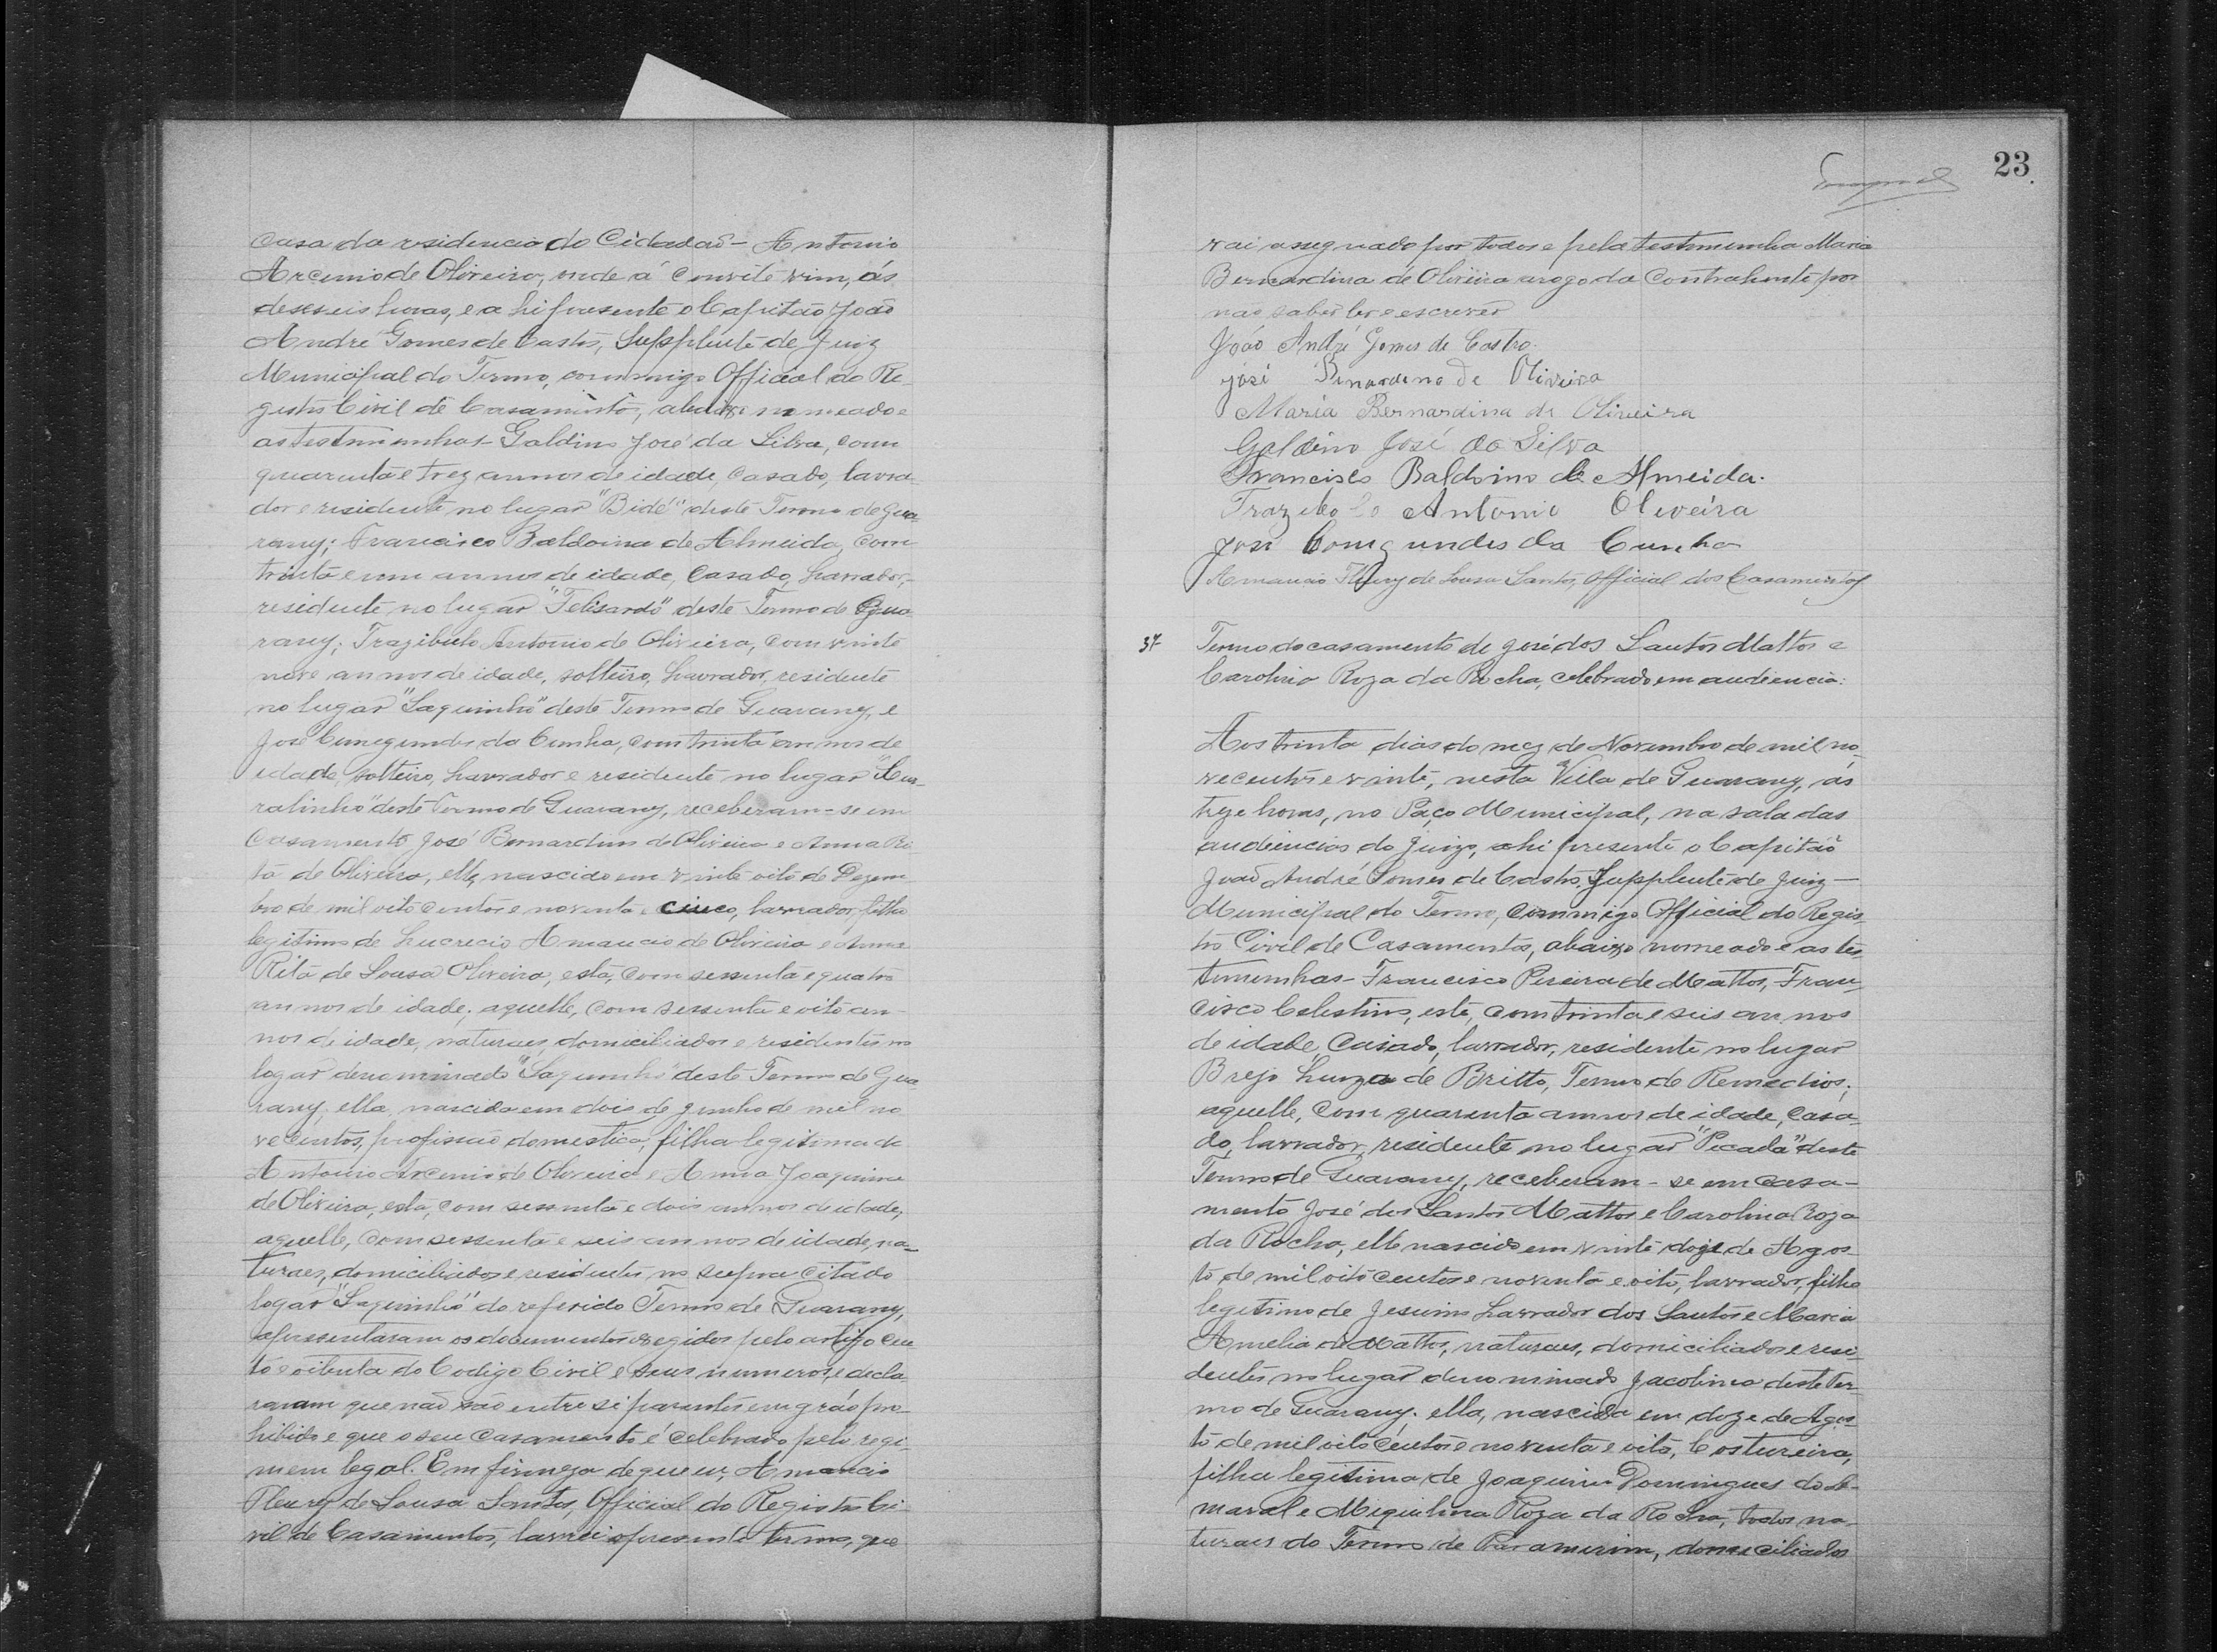 casa da residencia do Cidadaõ - Antonio
Arcenio de Oliveira, onde á convite vim, ás
deseseis horas, e a hi presente o Capitão João
André Gomes de Castro, Supplente de Juiz
Municipal do Termo, commigo Official do Re-
gistro Civil de Casamento, abaixo nomeado e
as testimunhas - Galdino José da Silva, com
quarenta e trez annos de idade, casado, lavra-
dor e residente no lugar "Bidé" deste Termo de Gua-
rany; Francisco Baldoino de Almeida, com
trinta e um annos de idade, casado, lavrador,
residente no lugar "Felisardo" deste Termo de Gua-
rany; Trazibulo Antonio de Oliveira, com vinte
nove annos de idade, solteiro, lavrador, residente
no lugar "Laguinho" deste Termo de Guarany, e
José Cunegundes da Cunha, com trinta annos de
idade, solteiro, lavrador e residente no lugar "Cur-
ralinho" deste Termo de Guarany, receberam-se em
Casamento José Bernardino de Oliveira e Anna Ri-
ta de Oliveira, elle, nascido em vinte oito de Dezem
bro de mil oito centos e noventa e cinco, lavrador, filho
legitimo de Lucrecio Amancio de Oliveira e Anna
Rita de Sousa Oliveira, esta, com sessenta e quatro
annos de idade; aquelle, com sessenta e oito an-
nos de idade, naturaes, domiciliados e residentes no
logar denominado "Laguinho" deste Termo de Gua
rany; ella, nascida em dois de Junho de mil no
vecentos, profissão domestica, filha legitima de
Antonio Arcenio de Oliveira e Anna Joaquina
de Oliveira, esta, com sessenta e dois annos de idade,
aquelle, com sessenta e seis annos de idade, na-
turaes, domiciliados e residentes no supra citado
logar "Laguinho" do referido Termo de Guarany,
apresentaram os documentos exegidos pelo artigo cen
to e oitenta do Codigo Civil e seus numeros, e decla
raram que naõ saõ entre si parentes em gráo pro-
hibido e que o seu casamento é celebrado pelo regi-
mem legal. Em firmeza de que eu, Amancio
Fleury de Sousa Santos, Official do Registro Ci-
vil de Casamentos, lavrei o presente termo, que
23
vai assegnado por todos e pela testimunha Maria
Bernardina de Oliveira arogo da Contrahente por
não saber ler e escrever
João André Gomes de Castro.
José Bernardino de Oliveira
Maria Bernardina de Oliveira
Galdino José da Silva
Francisco Baldoino de Almeida.
Trazibolo Antonio Oliveira
José Conegundes da Cunha
Amancio Fleury de Sousa Santos, Official dos Casamentos
37 Termo do casamento de José dos Santos Mattos e
Carolina Roza da Rocha, celebrado em audiencia.
Aos trinta dias do mez de Novembro de mil no-
vecentos e vinte, nesta Villa de Guarany, ás
treze horas, no Paço Municipal, na sala das
audiencias do Juizo, ahi presente o Capitaõ
Joaõ André Gomes de Castro, Supplente de Juiz
Municipal do Termo, commigo Official do Regis
tro Civil de Casamentos, abaixo nomeado e as tes
timunhas - Francisco Pereira de Mattos, Fran-
cisco Celestino, este, com trinta e seis annos
de idade, casado, lavrador, residente no lugar
Brejo Luiza de Britto, Termo de Remedios;
aquelle, com quarenta annos de idade, casa-
do, lavrador, residente no lugar "Picada" deste
Termo de Guarany, receberam-se em casa-
mento José dos Santos Mattos e Carolina Roza
da Rocha, elle nascido em vinte doze de Agos-
to de mil oito centos e noventa e oito, lavrador, filho
legitimo de Jesuino Lavrador dos Santos e Maria
Amelia de Mattos, naturaes, domiciliados e resi-
dentes no lugar denominado Jacolina deste Ter-
mo de Guarany; ella, nascida em doze de Agos-
to de mil oito centos e noventa e oito, Costureira,
filha legitima de Joaquim Domingues do A-
maral e Miquilina Roza da Rocha, todos na-
turaes do Termo de Paramirim, domiciliados